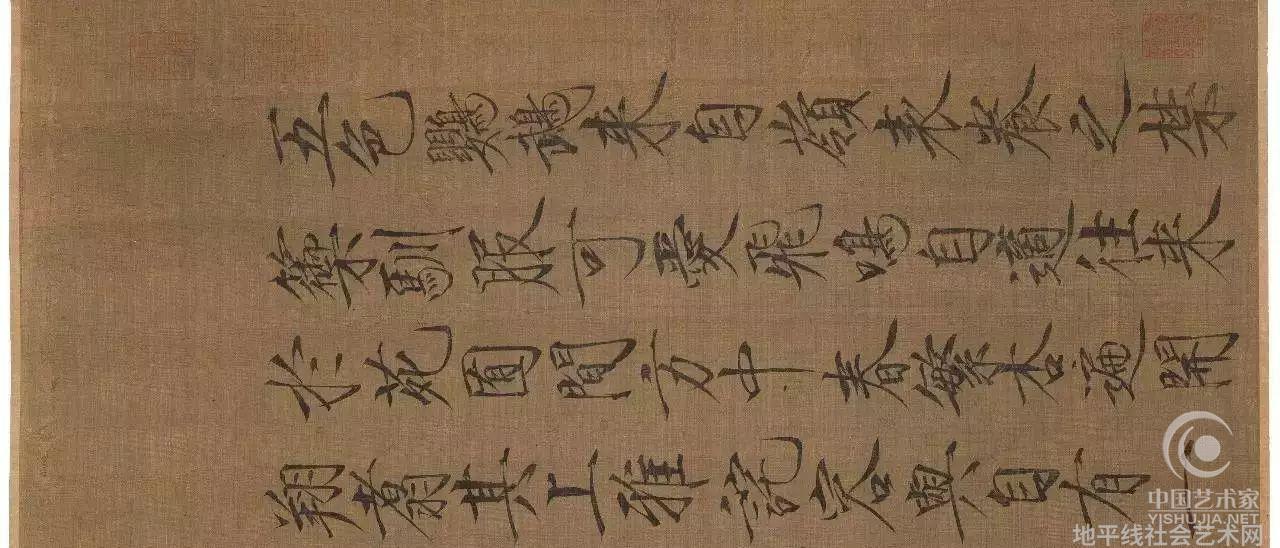 五色鸚鵡來自嶺表養之禁
籞馴服可愛飛鳴自適往來
於苑囿間方中春繁杏遍開
翔翥其上雅詫容與自有一
中国艺术家
YISHUJIA.NET
地平线社会艺术网